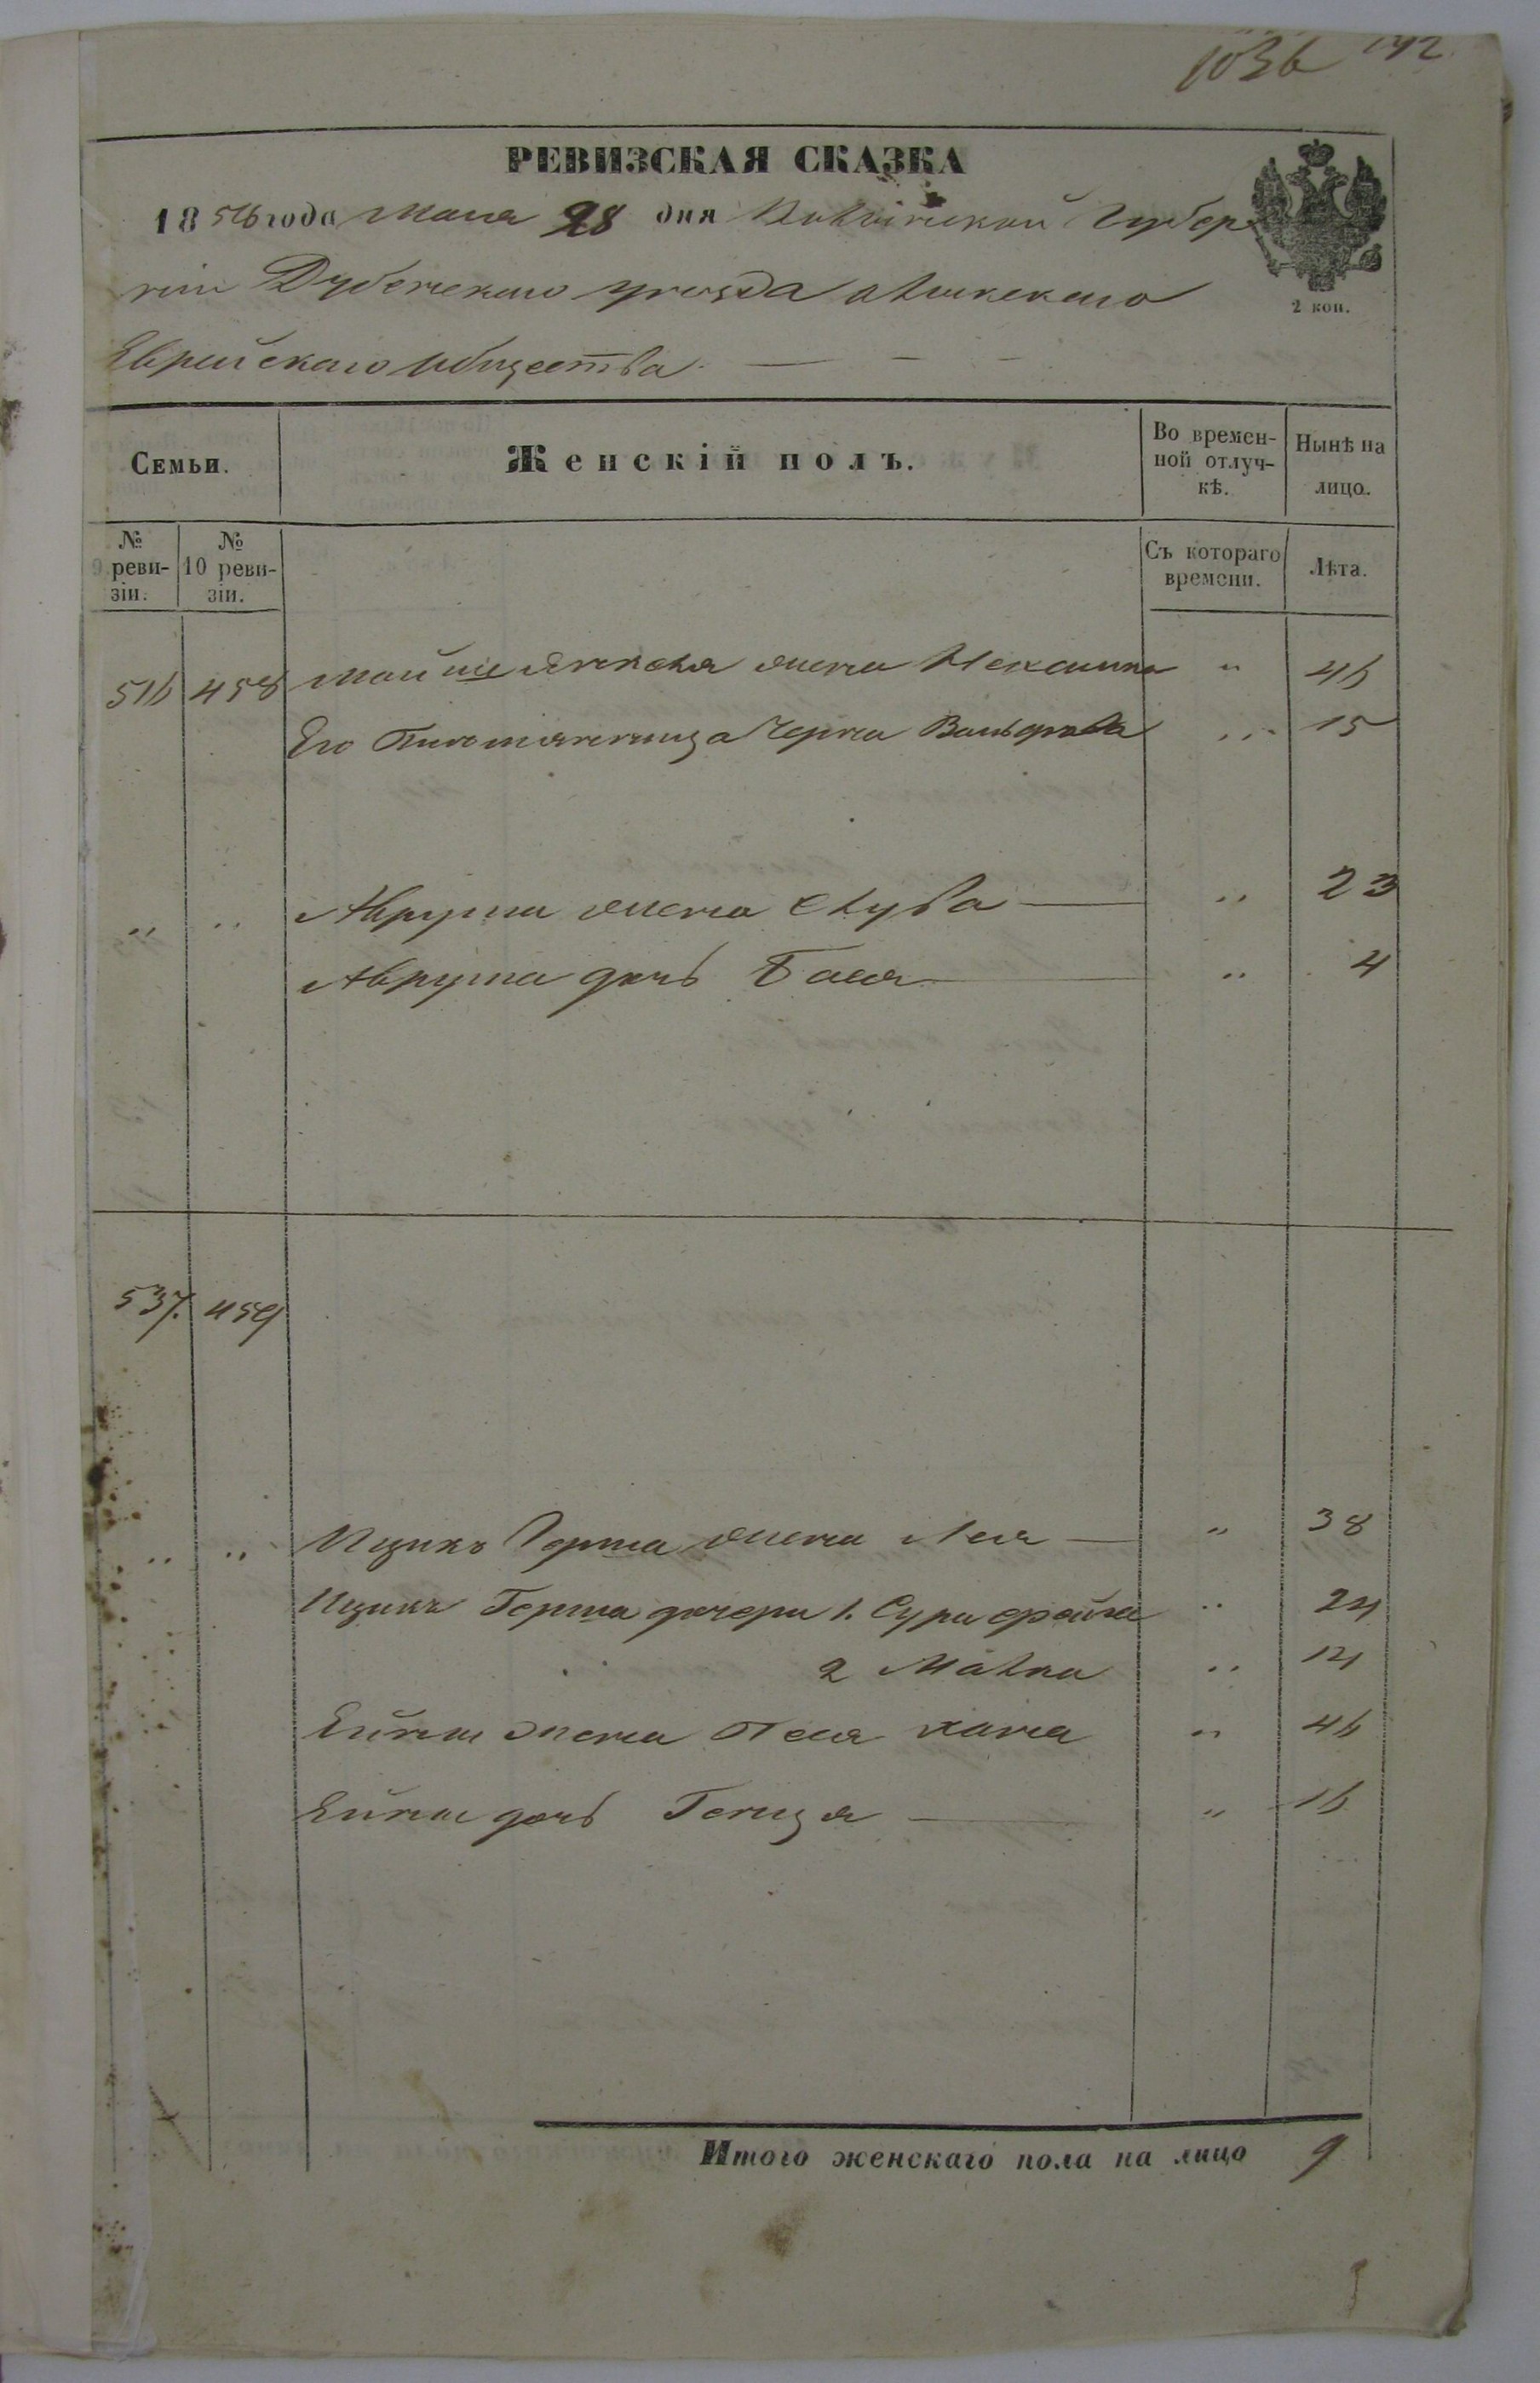 1036 142
РЕВИЗСКАЯ СКАЗКА
1858 года Мая 28 дня Волынской Губер
ніи Дубенскаго уѣзда
Еврейскаго общества.
2 коп.
Семьи.
Женскій полъ.
Во времен-
ной отлуч-
кѣ.
Нынѣ на
лицо.
№
9 реви-
зіи.
№
10 реви-
зіи.
Съ котораго
времени.
Лѣта.
516 458 Мойше Янкеля жена " 46
Его Племянница Черна " 15
" " Аврума жена Люба " 23
Аврума дочь Бася " 4
537. 459
" " Ицикъ Герша жена Лея " 38
Ицикъ Герша дочери 1. Сура Фейга " 24
2 Малка " 14
жена Песя Хана " 46
дочь Генця " 16
Итого женскаго пола на лицо 9